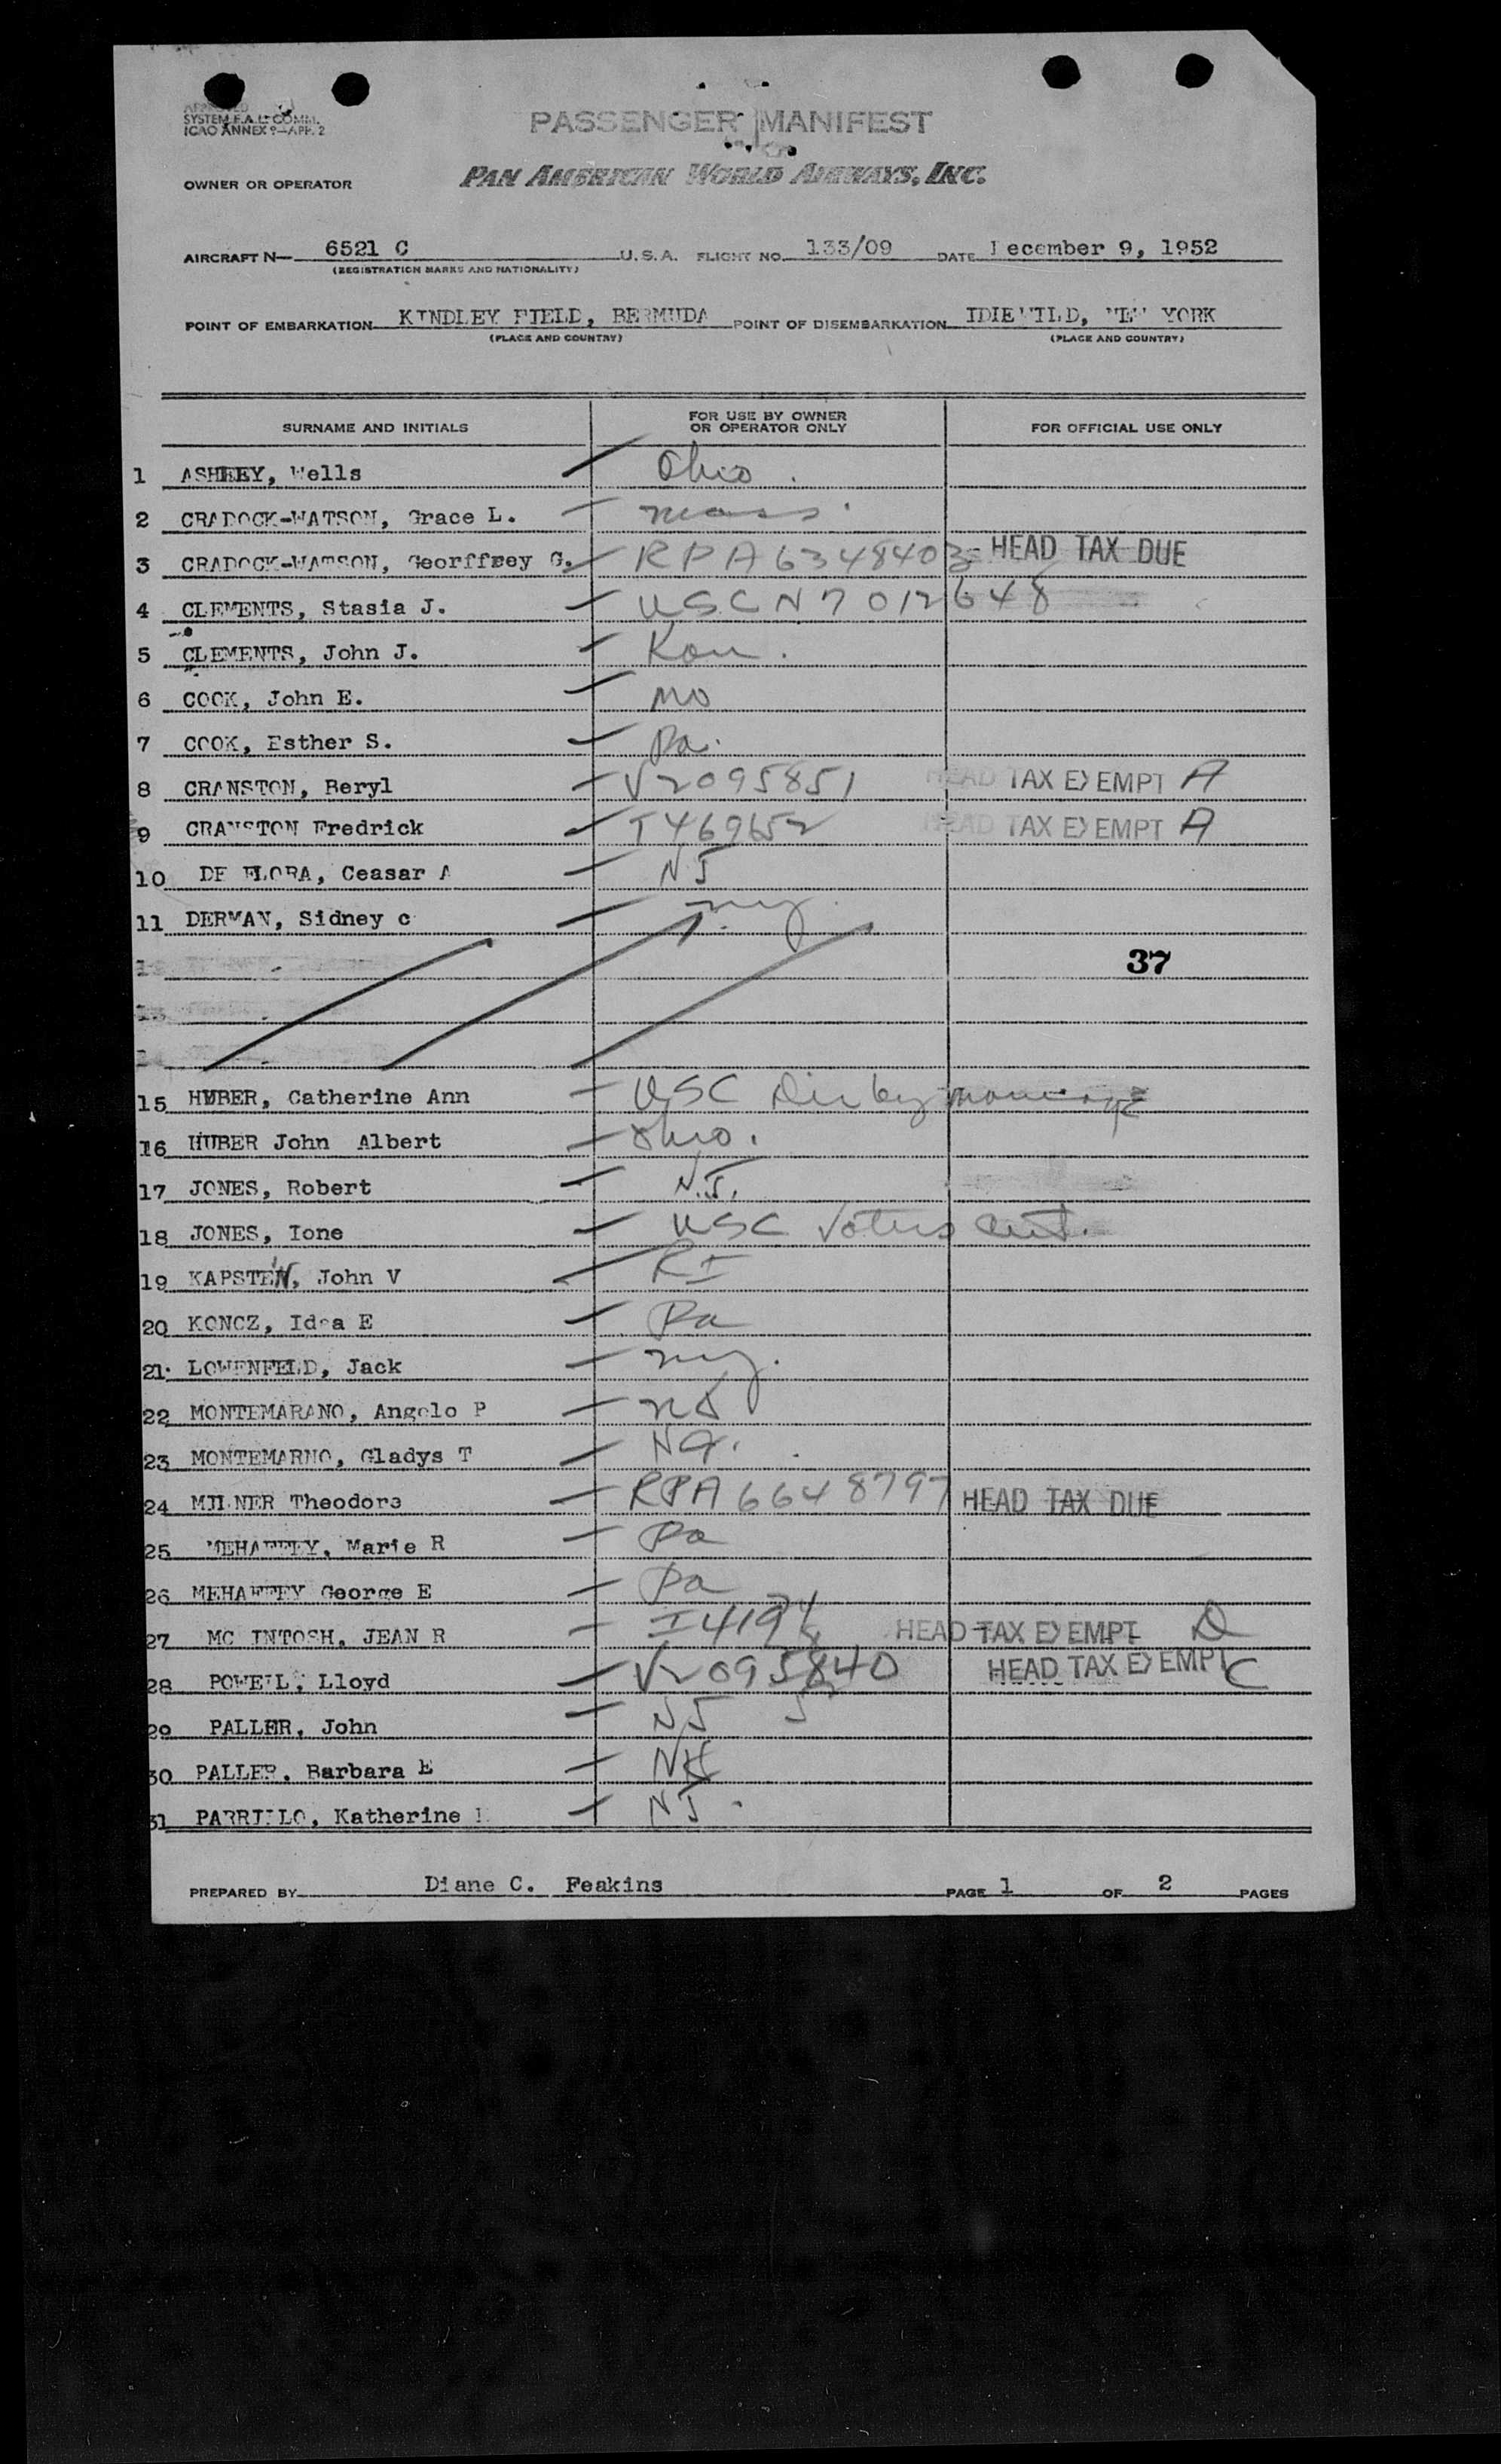 APPROVED
SYSTEM F.A.L. COMM.
ICAO ANNEX 9—APP. 2
PASSENGER MANIFEST
OWNER OR OPERATOR PAN AMERICAN WORLD AIRWAYS, INC.
AIRCRAFT N— 6521 C U.S.A. FLIGHT NO. 133/09 DATE December 9, 1952
(REGISTRATION MARKS AND NATIONALITY)
POINT OF EMBARKATION KINDLEY FIELD, BERMUDA POINT OF DISEMBARKATION IDLEWILD, NEW YORK
(PLACE AND COUNTRY) (PLACE AND COUNTRY)
SURNAME AND INITIALS FOR USE BY OWNER OR OPERATOR ONLY FOR OFFICIAL USE ONLY
1 ASHLEY, Wells Ohio.
2 CRADOCK-WATSON, Grace L. Mass.
3 CRADOCK-WATSON, Georffrey G. RPA 6348403 HEAD TAX DUE
4 CLEMENTS, Stasia J. USC N 7012648
5 CLEMENTS, John J. Kan.
6 COOK, John E. Mo
7 COOK, Esther S. Pa.
8 CRANSTON, Beryl V2095851 HEAD TAX EXEMPT A
9 CRANSTON Fredrick I469652 HEAD TAX EXEMPT A
10 DE FLORA, Ceasar A NJ
11 DERMAN, Sidney c NY.
12 37
13
14
15 HUBER, Catherine Ann USC Der by marriage
16 HUBER John Albert Ohio.
17 JONES, Robert N.J.
18 JONES, Ione USC Voters Cert.
19 KAPSTEN, John V RI
20 KONCZ, Idea E Pa
21 LOWENFELD, Jack NY.
22 MONTEMARANO, Angelo P NJ
23 MONTEMARNO, Gladys T
24 MILNER Theodore RPA 6648797 HEAD TAX DUE
25 MEHAFFEY, Marie R Pa
26 MEHAFFEY George E Pa
27 MC INTOSH, JEAN R HEAD TAX EXEMPT D
28 POWELL, Lloyd HEAD TAX EXEMPT C
29 PALLER, John NJ
30 PALLER, Barbara E
31 PARRILLO, Katherine NJ.
PREPARED BY Diane C. Feakins PAGE 1 OF 2 PAGES